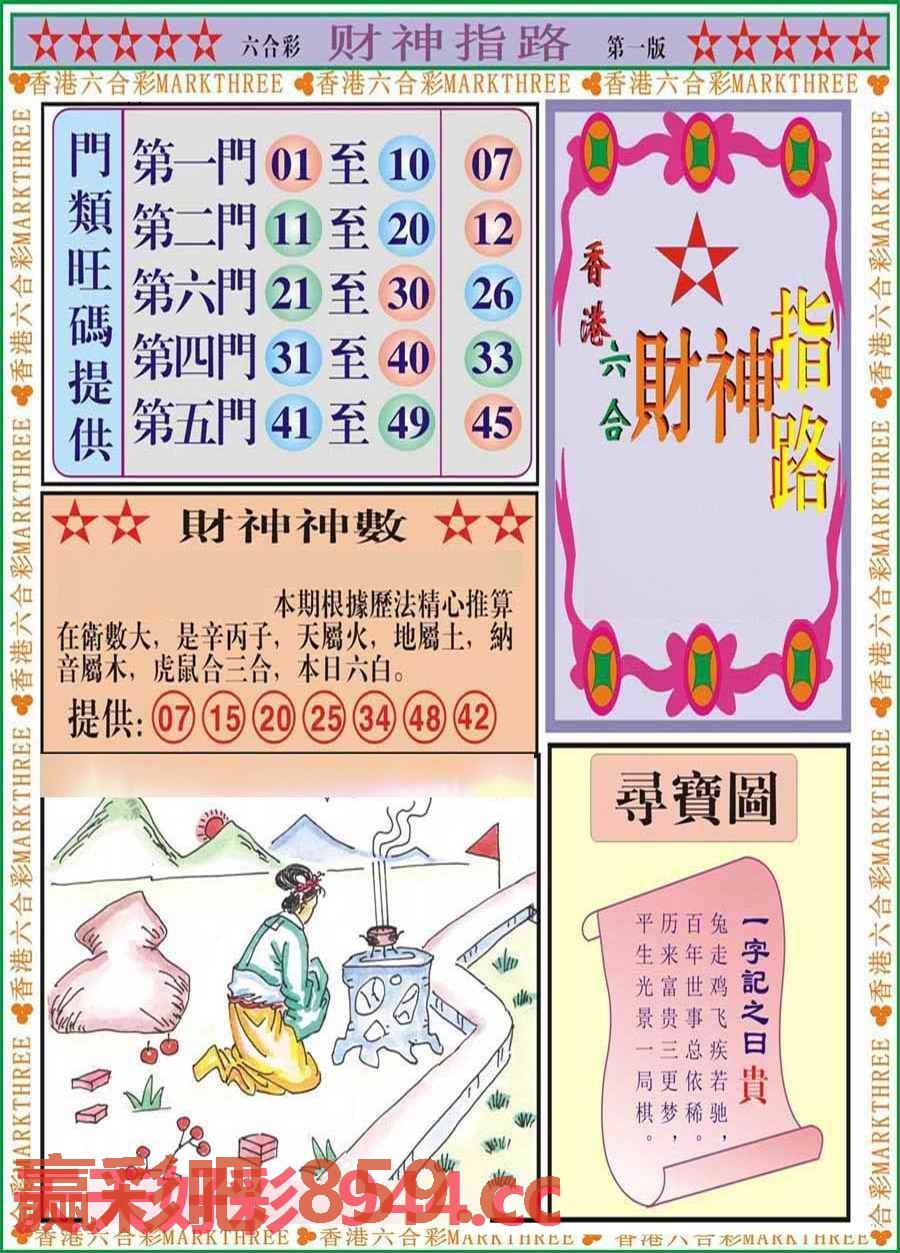 六合彩 财神指路 第一版
香港六合彩MARKTHREE 香港六合彩MARKTHREE 香港六合彩MARKTHREE
門類旺碼提供
第一門 01 至 10 07
第二門 11 至 20 12
第六門 21 至 30 26
第四門 31 至 40 33
第五門 41 至 49 45
香港六合
財神指路
財神神數
本期根據歷法精心推算
在衛數大，是辛丙子，天屬火，地屬土，納
音屬木，虎鼠合三合，本日六白。
提供: 07 15 20 25 34 48 42
尋寶圖
一字記之日 貴
兔走鸡飞疾若驰，
百年世事总依稀。
历来富贵三更梦，
平生光景一局棋。
香港六合彩MARKTHREE 香港六合彩MARKTHREE 香港六合彩MARKTHREE